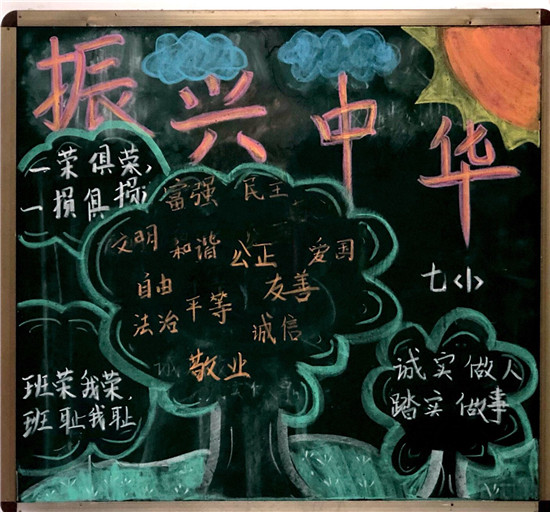 振兴中华
一荣俱荣,
一损俱损;
富强 民主
文明 和谐 公正 爱国
自由 平等 友善
法治 诚信
敬业
七<小>
班荣我荣,
班耻我耻
诚实做人
踏实做事